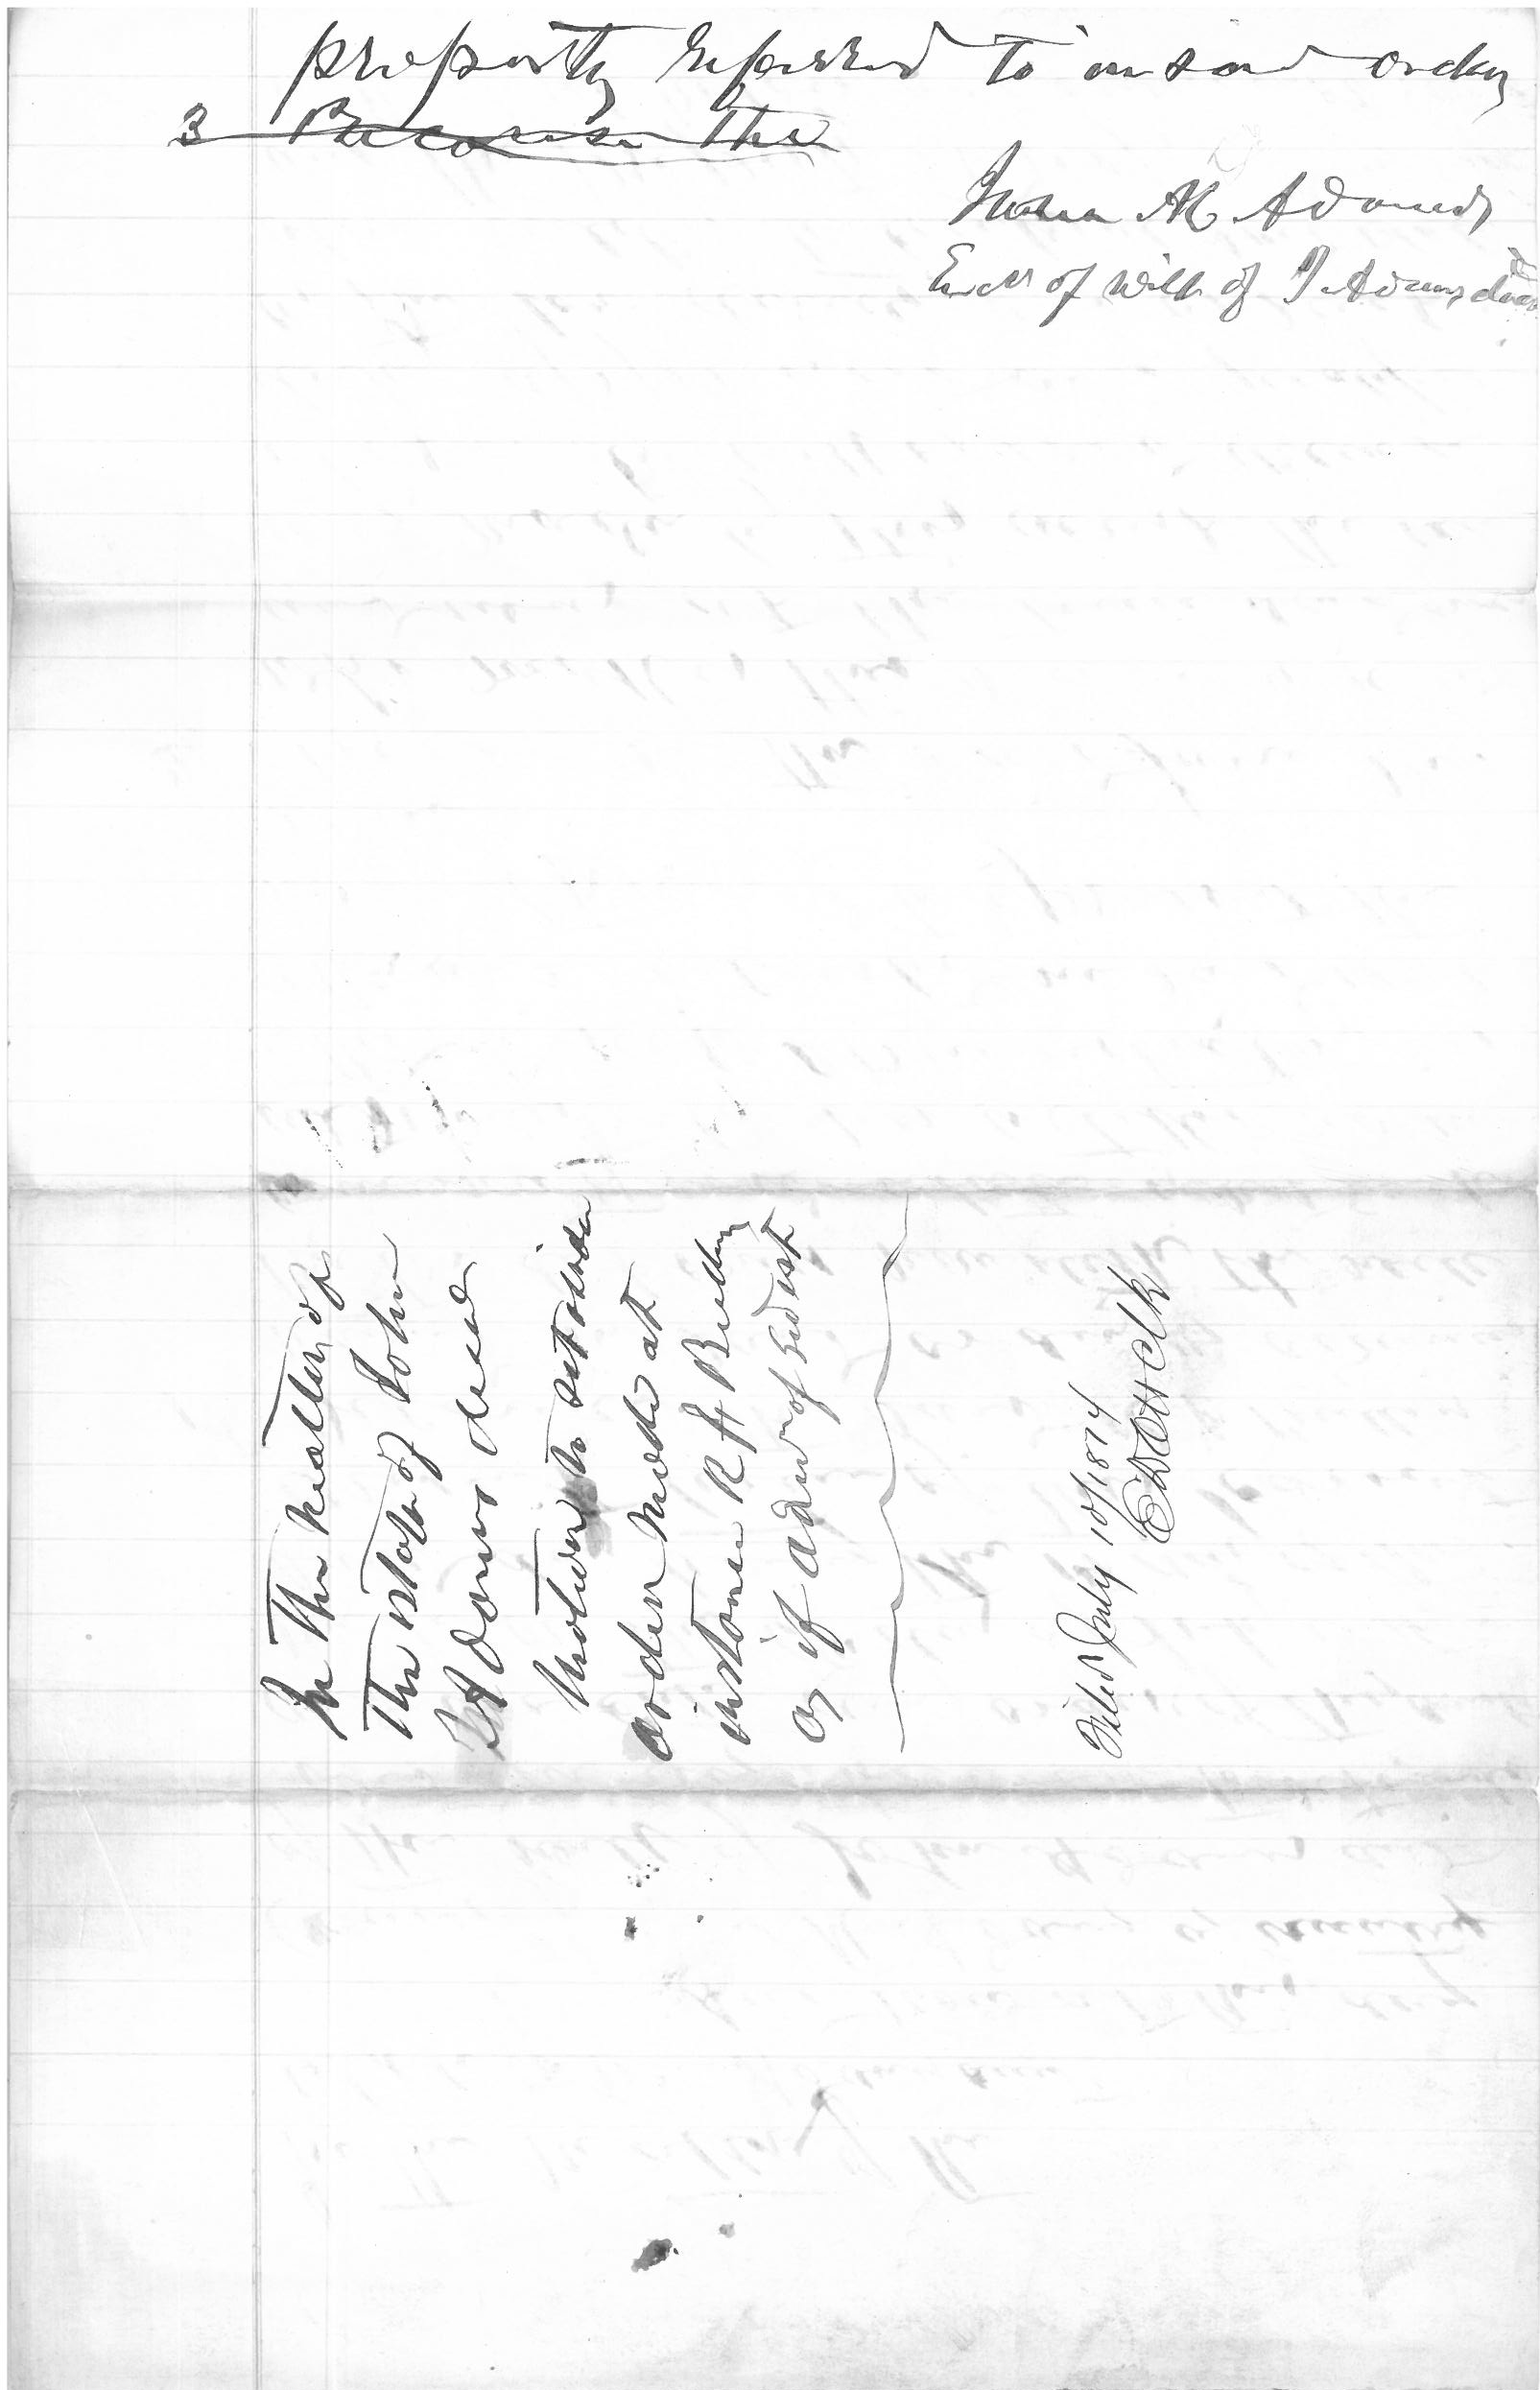 property referred to in said order
3 Because the
M Adams
Exr of will of J Adams decd
In the matter of
the estate of John
Adams decd
Motion to set aside
order made at
instance R H
as if admr of sd est
Filed July 10/1874
Clk